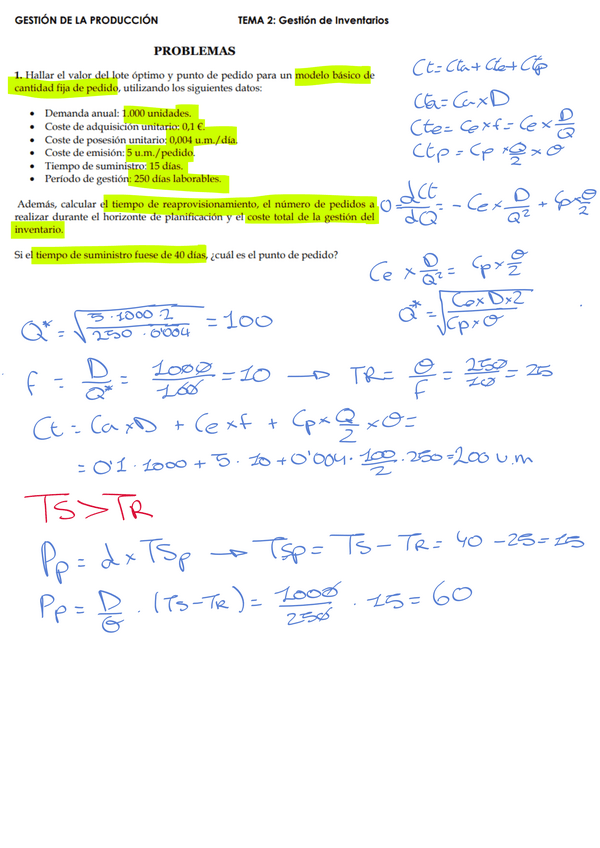 GESTIÓN DE LA PRODUCCIÓN TEMA 2: Gestión de Inventarios
PROBLEMAS
1. Hallar el valor del lote óptimo y punto de pedido para un modelo básico de
cantidad fija de pedido, utilizando los siguientes datos:
• Demanda anual: 1.000 unidades.
• Coste de adquisición unitario: 0,1 €.
• Coste de posesión unitario: 0,004 u.m./día.
• Coste de emisión: 5 u.m./pedido.
• Tiempo de suministro: 15 días.
• Período de gestión: 250 días laborables.
Además, calcular el tiempo de reaprovisionamiento, el número de pedidos a
realizar durante el horizonte de planificación y el coste total de la gestión del
inventario.
Si el tiempo de suministro fuese de 40 días, ¿cuál es el punto de pedido?
Ct = Cta + Cte + Ctp
Cta = Ca x D
Cte = Ce x f = Ce x D/Q
Ctp = Cp x Q/2 x θ
0 = dCt/dQ = - Ce x D/Q² + Cp x θ/2
Ce x D/Q² = Cp x θ/2
Q* = √(Ce x D x 2 / Cp x θ)
Q* = √(5 · 1000 · 2 / 250 · 0'004) = 100
f = D/Q* = 1000/100 = 10 → TR = θ/f = 250/10 = 25
Ct = Ca x D + Ce x f + Cp x Q/2 x θ =
= 0'1 · 1000 + 5 · 10 + 0'004 · 100/2 · 250 = 200 u.m
TS > TR
Pp = d x TSp → TSp = TS - TR = 40 - 25 = 15
Pp = D/θ · (TS - TR) = 1000/250 · 15 = 60